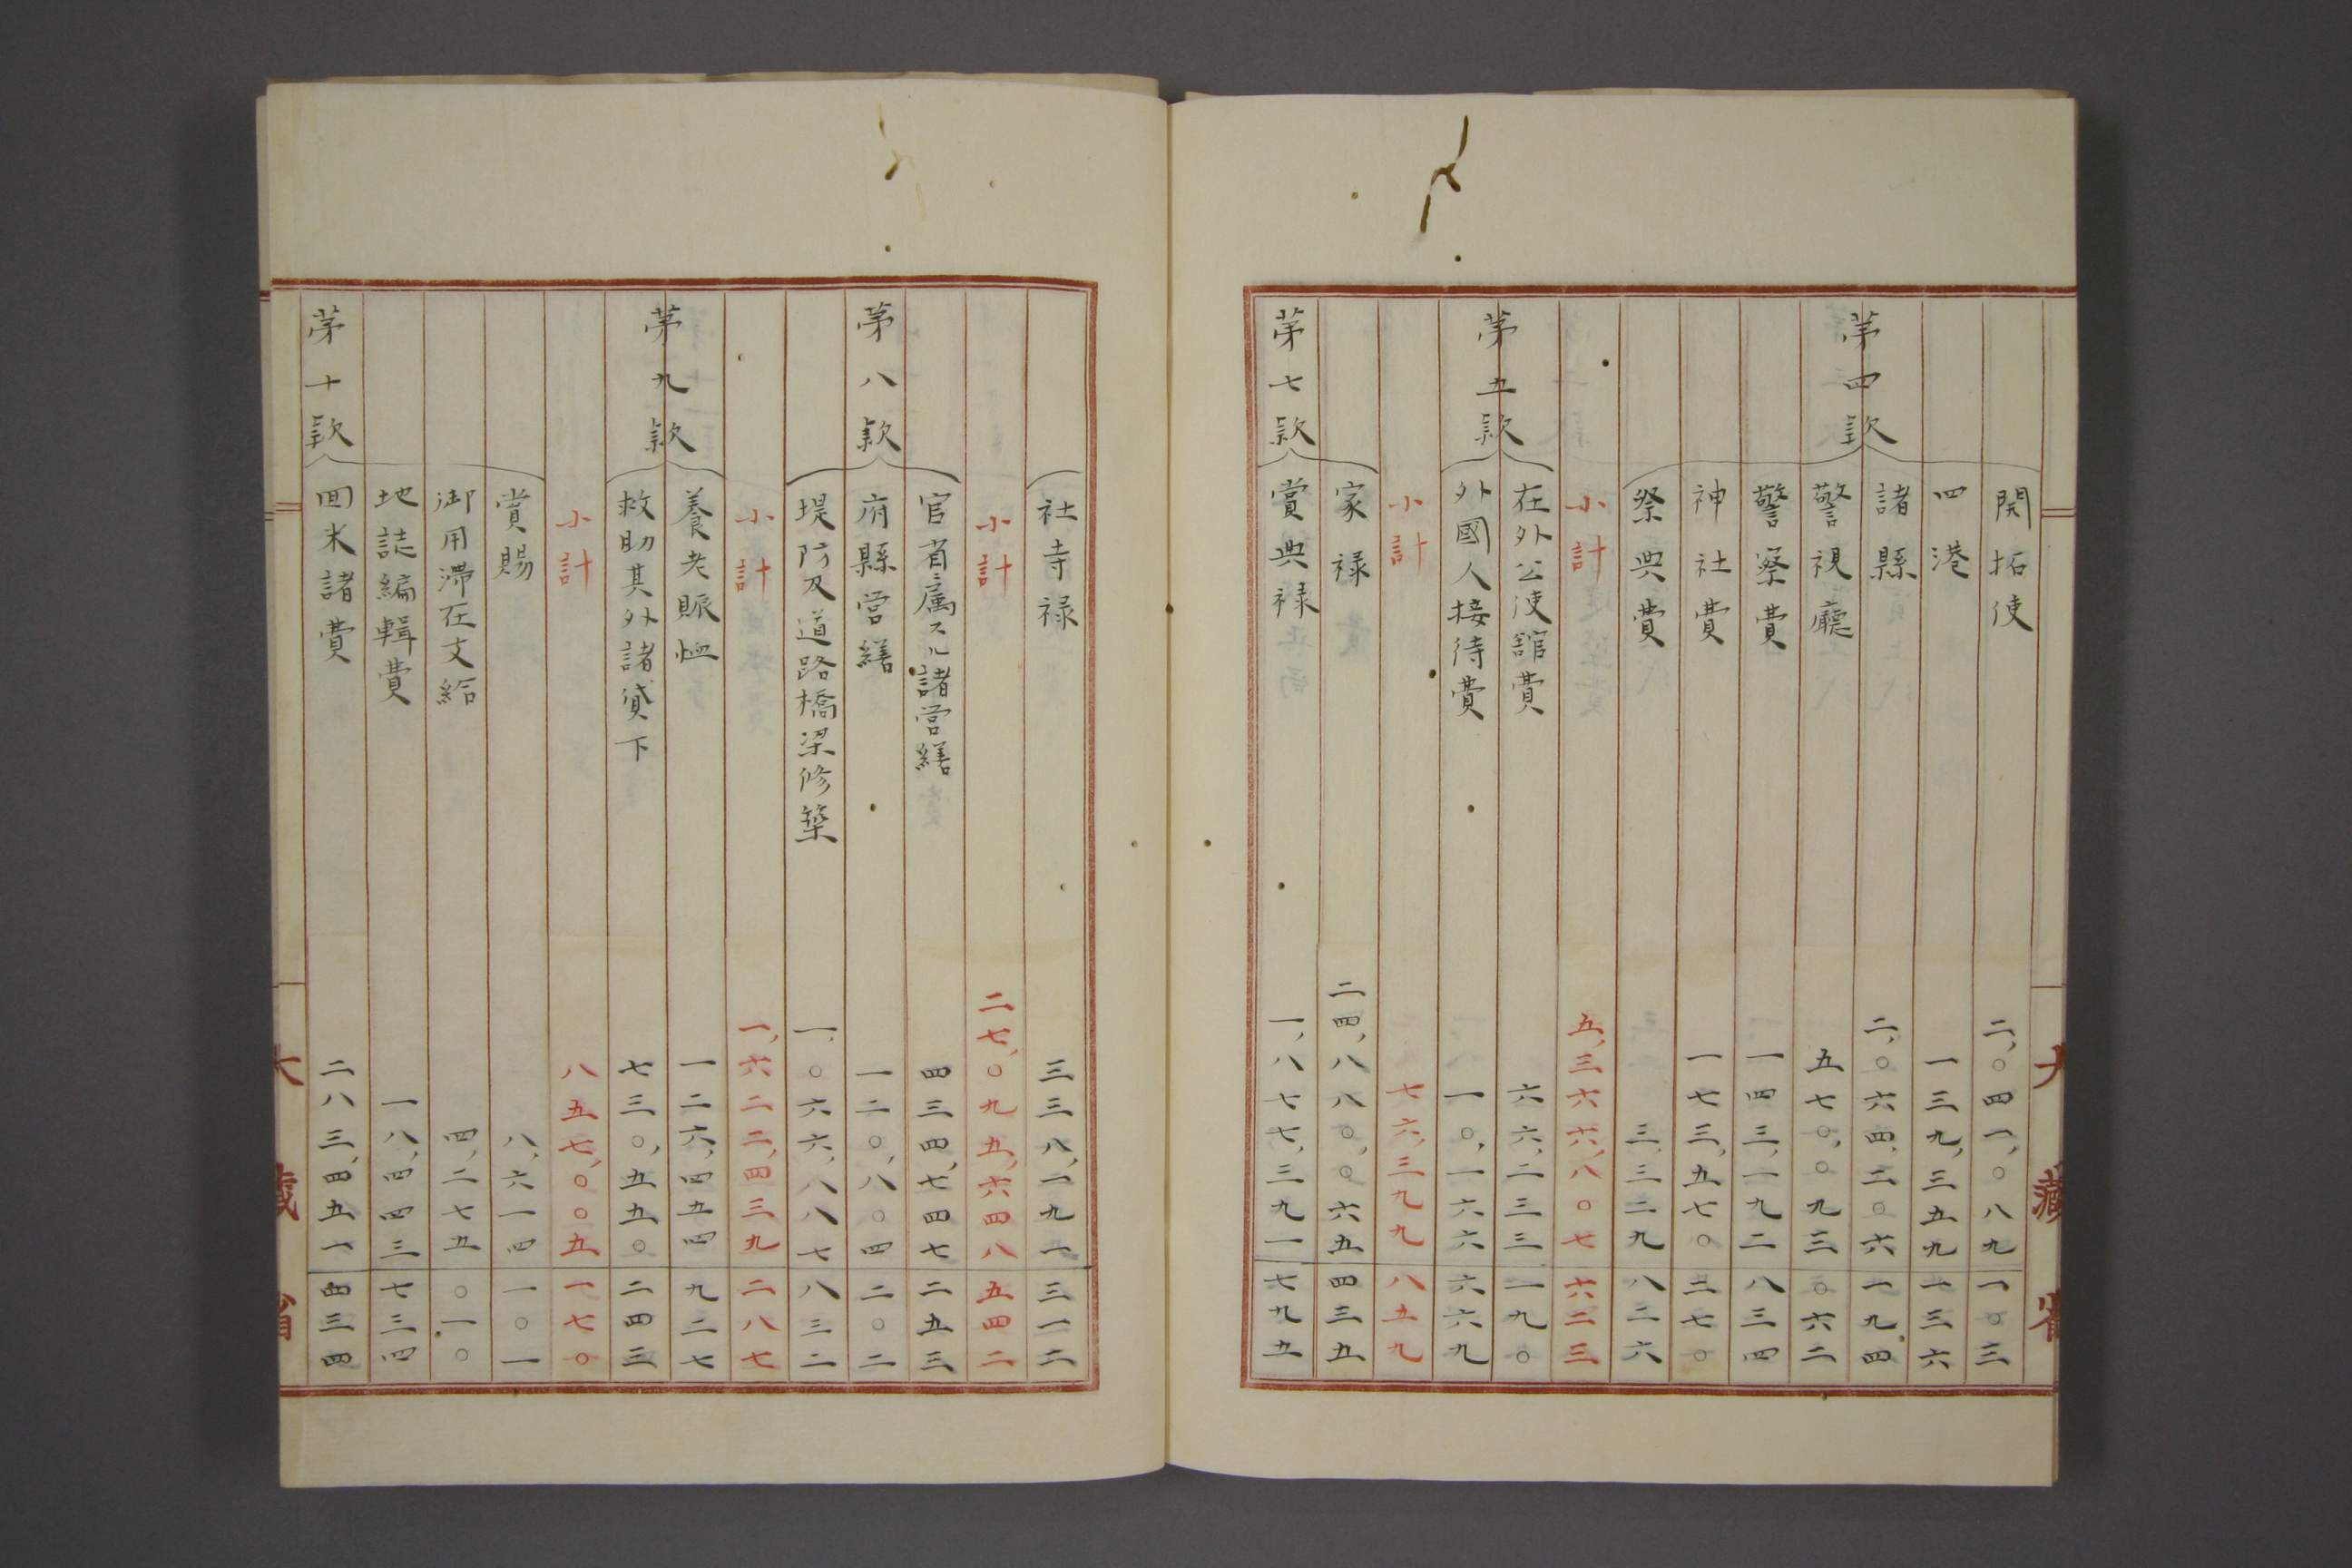 第四款
開拓使 二,〇四一,〇八九 一〇三
四港 一三九,三五九 一三六
諸縣 二,〇六四,二〇六 一九四
警視廳 五七〇,〇九三 〇六二
警察費 一四三,一九二 八三四
神社費 一七三,五七〇 二七〇
祭典費 三,三二九 八二六
小計 五,三六六,八〇七 六二三
第五款
在外公使館費 六六,二三三 一九〇
外國人接待費 一〇,一六六 六六九
小計 七六,三九九 八五九
第七款
家禄 二四,八八〇,〇六五 四三五
賞典禄 一,八七七,三九一 七九五
大藏省
社寺禄 三三八,一九一 三一二
小計 二七,〇九五,六四八 五四二
第八款
官省ニ属スル諸営繕 四三四,七四七 二五三
府縣営繕 一二〇,八〇四 二〇二
堤防及道路橋梁修築 一,〇六六,八八七 八三二
小計 一,六二二,四三九 二八七
第九款
養老賑恤 一二六,四五四 九二七
救助其外諸貸下 七三〇,五五〇 二四三
小計 八五七,〇〇五 一七〇
第十款
賞賜 八,六一四 一〇一
御用滞在支給 四,二七五 〇一〇
地誌編輯費 一八,四四三 七三四
回米諸費 二八三,四五一 四三四
大藏省